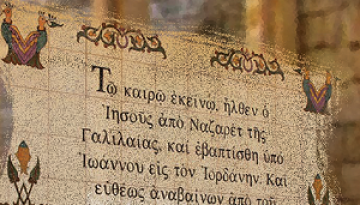 Τῷ καιρῷ ἐκείνῳ, ἦλθεν ὁ
Ἰησοῦς ἀπὸ Ναζαρὲτ τῆς
Γαλιλαίας, καὶ ἐβαπτίσθη ὑπὸ
Ἰωάννου εἰς τὸν Ἰορδάνην. Καὶ
εὐθέως ἀναβαίνων ἀπὸ τοῦ